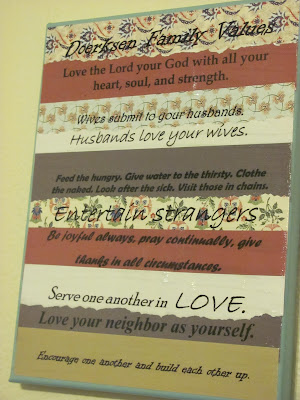 Doerksen Family Values
Love the Lord your God with all your
heart, soul, and strength.
Wives submit to your husbands.
Husbands love your wives.
Feed the hungry. Give water to the thirsty. Clothe
the naked. Look after the sick. Visit those in chains.
Entertain strangers
Be joyful always, pray continually, give
thanks in all circumstances.
Serve one another in LOVE.
Love your neighbor as yourself.
Encourage one another and build each other up.